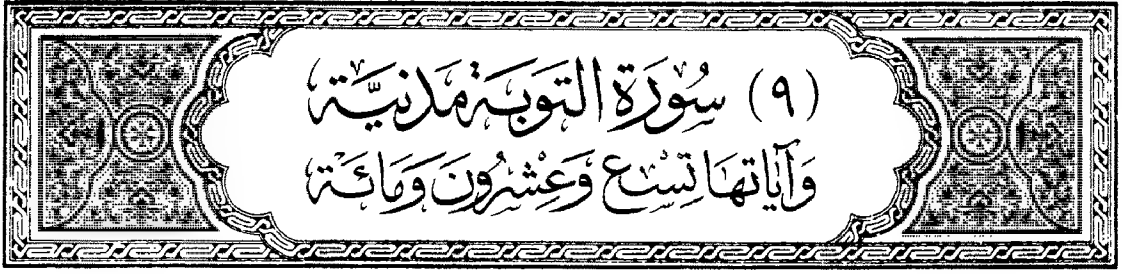 (٩) سُورَةُ التَّوبَةِ مَدَنِيَّة
وَآيَاتُهَا تِسْعٌ وَعِشْرُونَ وَمِائَة